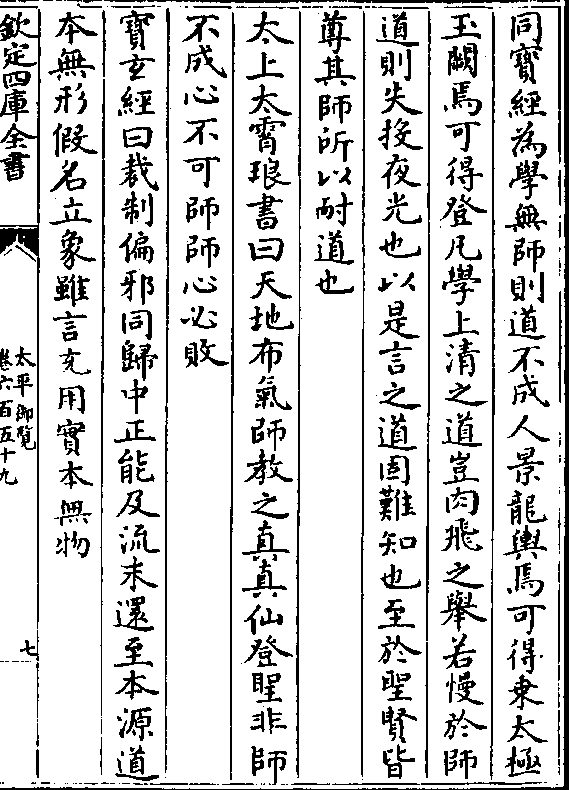 同寳經為學無師則道不成人景龍輿焉可得乗太極
玉闕焉可得登凡學上清之道豈肉飛之舉若慢於師
道則失投夜光也以是言之道固難知也至於聖賢皆
尊其師所以耐道也
太上太霄琅書曰天地布氣師教之真真仙登聖非師
不成心不可師師心必敗
寳玄經曰裁制偏邪同歸中正能及流末還至本源道
本無形假名立象雖言充用實本無物
欽定四庫全書
太平御覽
卷六百五十九
七